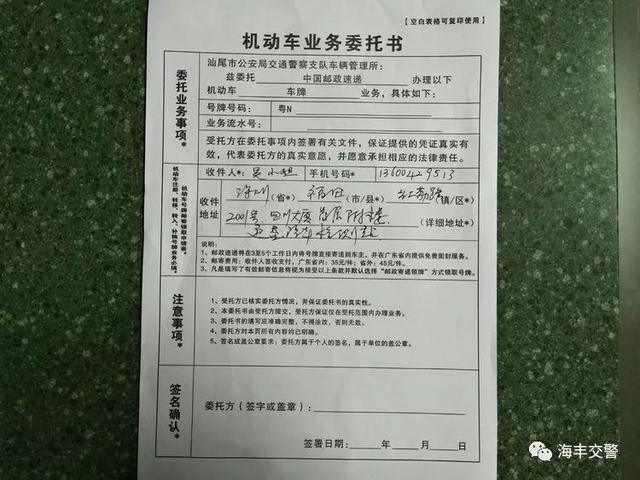 【空白表格可复印使用】
机动车业务委托书
委托业务事项*
汕尾市公安局交通警察支队车辆管理所：
兹委托 中国邮政速递 办理以下
机动车 车牌 业务，具体如下：
号牌号码： 粤N
业务流水号：
受托方在委托事项内签署有关文件，保证提供的凭证真实有
效，代表委托方的真实意愿，并愿意承担相应的法律责任。
机动车号牌邮寄领取申请表。
机动车注册、转移、转入、补换号牌业务必填。
收件人*： 吴小姐 手机号码*： 13600429513
收件
地址
深圳（省*） 福田（市/县*） 红荔路 镇/区*）
2001号 四川大厦首层附楼
（详细地址*）
说明：
1、邮政速递将在3至5个工作日内将号牌直接寄递到车主，并在广东省内提供免费回封服务。
2、邮寄费用：收件人签收支付，广东省内：35元/件；省外：45元/件。
3、凡是填写了有效邮寄信息将视为接受以上条款并默认选择“邮政寄递领牌”方式领取号牌。
注意事项*
1、受托方已核实委托方情况，并保证委托书的真实性。
2、本委托书由受托方提交，受托方保证仅在受托范围内办理业务。
3、委托书的填写应准确完整，不得涂改，否则无效。
4、委托方对本页所有内容均已明确。
5、签名或盖公章要求：委托方属于个人的签名，属于单位的盖公章。
签名确认*
委托方（签字或盖章）：
签署日期： 年 月 日
海丰交警